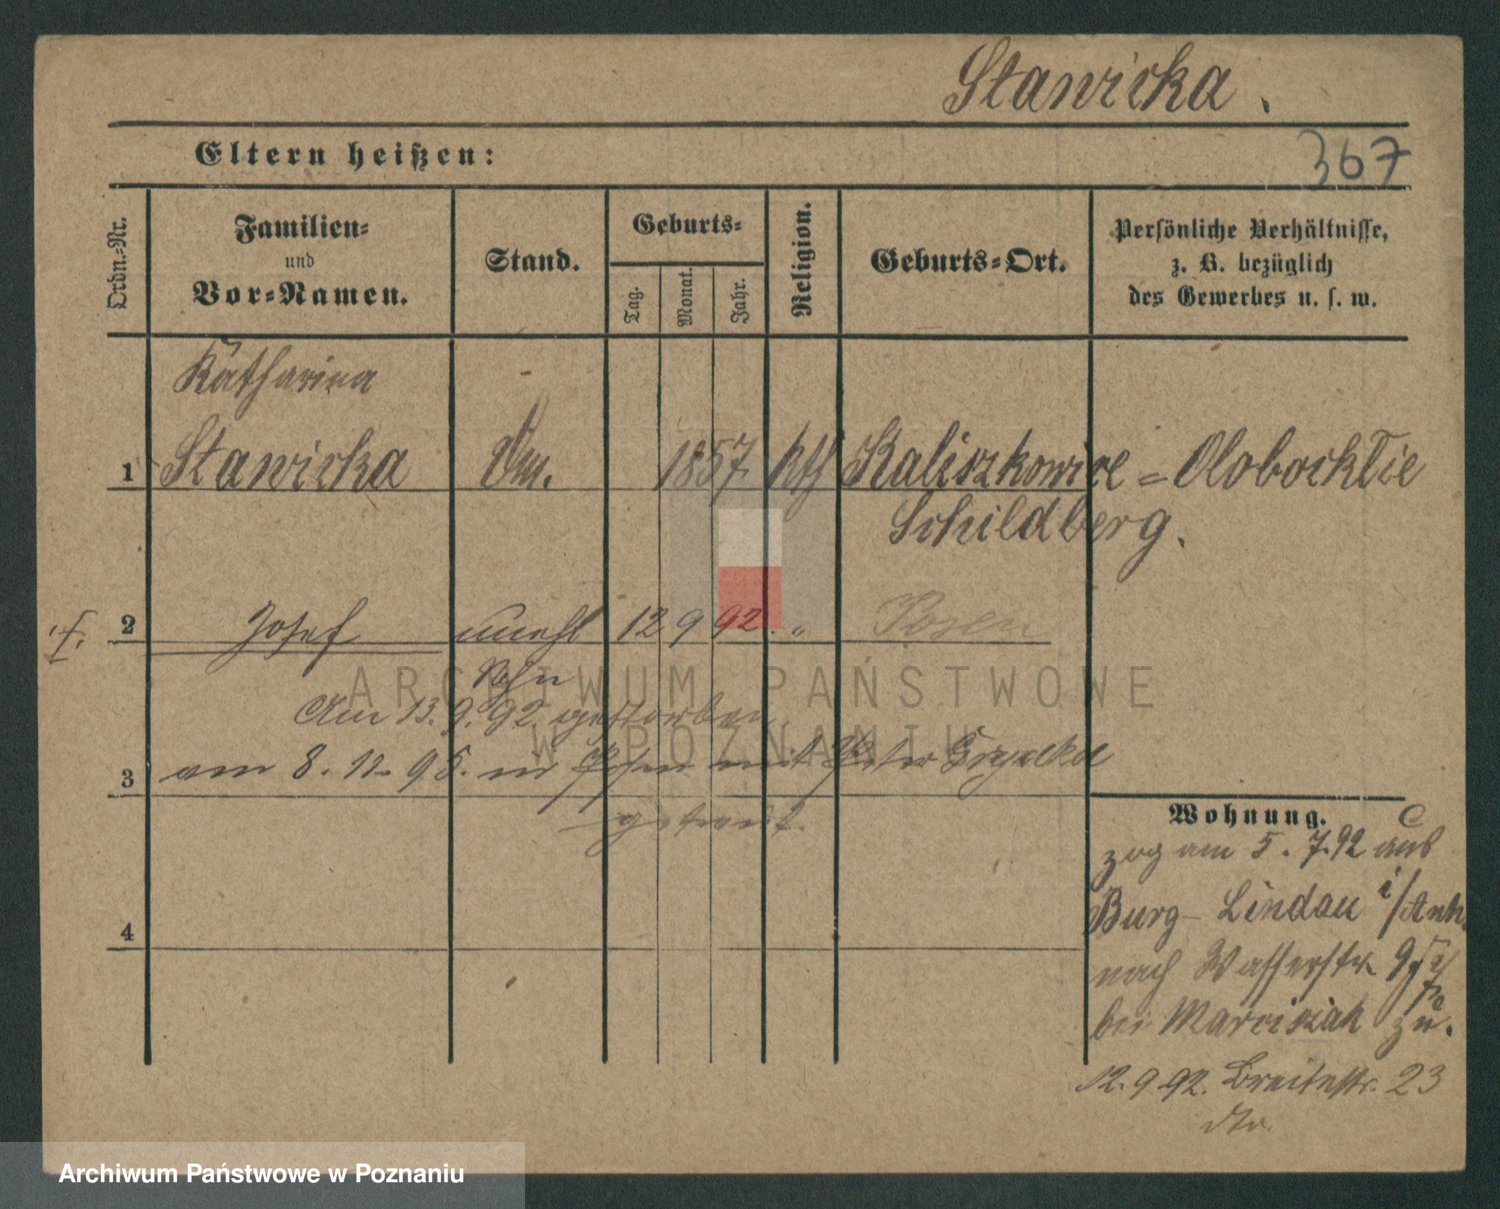 Stawicka.
Eltern heißen:
367
Ordn.-Nr.
Familien-
und
Vor-Namen.
Stand.
Geburts-
Tag.
Monat.
Jahr.
Religion.
Geburts-Ort.
Persönliche Verhältnisse,
z. B. bezüglich
des Gewerbes u. s. w.
Katharina
1 Stawicka 1857 kth Kaliszkowice = Olobocktie
Schildberg.
2 Josef unehl 12 9 92. " Posen
Sohn
Am 13.9.92 gestorben
3 am 8. 11. 95. in Posen mit Peter
getraut.
4
Wohnung.
zog am 5. 7. 92 aus
Burg-Lindau i/Anh.
nach Wasserstr
bei Marciszak zu.
12. 9 92. Breitestr. 23
ARCHIWUM PAŃSTWOWE
W POZNANIU
Archiwum Państwowe w Poznaniu